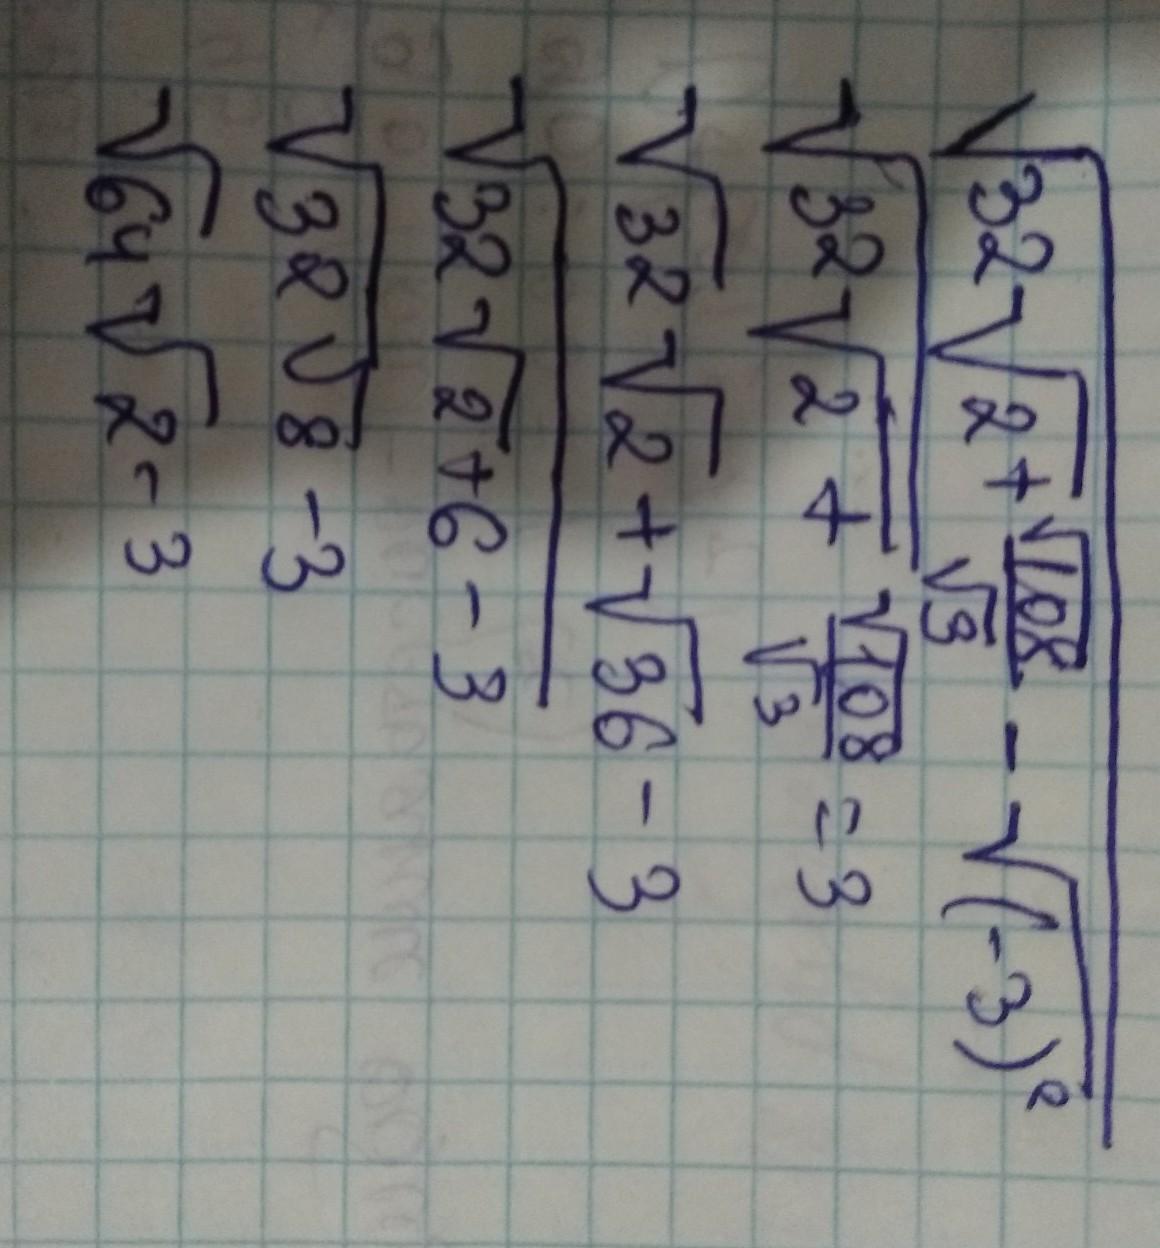 √32√2 + √108/√3 - √(-3)²
√32√2 + √108/√3 = 3
√32√2 + √36 - 3
√32√2 + 6 - 3
√32√8 - 3
√64√2 - 3